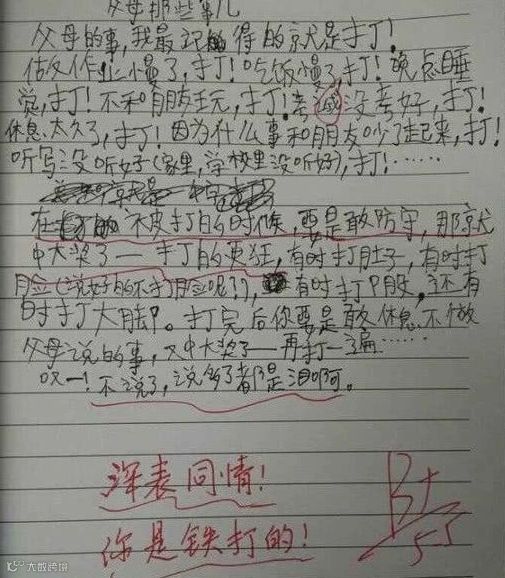 父母那些事儿
父母的事,我最记得的就是打!
做作业慢了,打!吃饭慢了,打!晚点睡
觉,打!不和朋友玩,打!考试没考好,打!
休息太久了,打!因为什么事和朋友吵了起来,打!
听写没听好(家里,学校里没听好),打!……
在 被打的时候,要是敢防守,那就
中大奖了—打的更狂,有时打肚子,有时打
脸(说好的不打脸呢?),有时打P股,还有
时打大腿。打完后你要是敢休息,不做
父母说的事,又中大奖了—再打一遍……
哎—!不说了,说多了都是泪啊。
深表同情!
你是铁打的!
B+
5.5
大数跨境